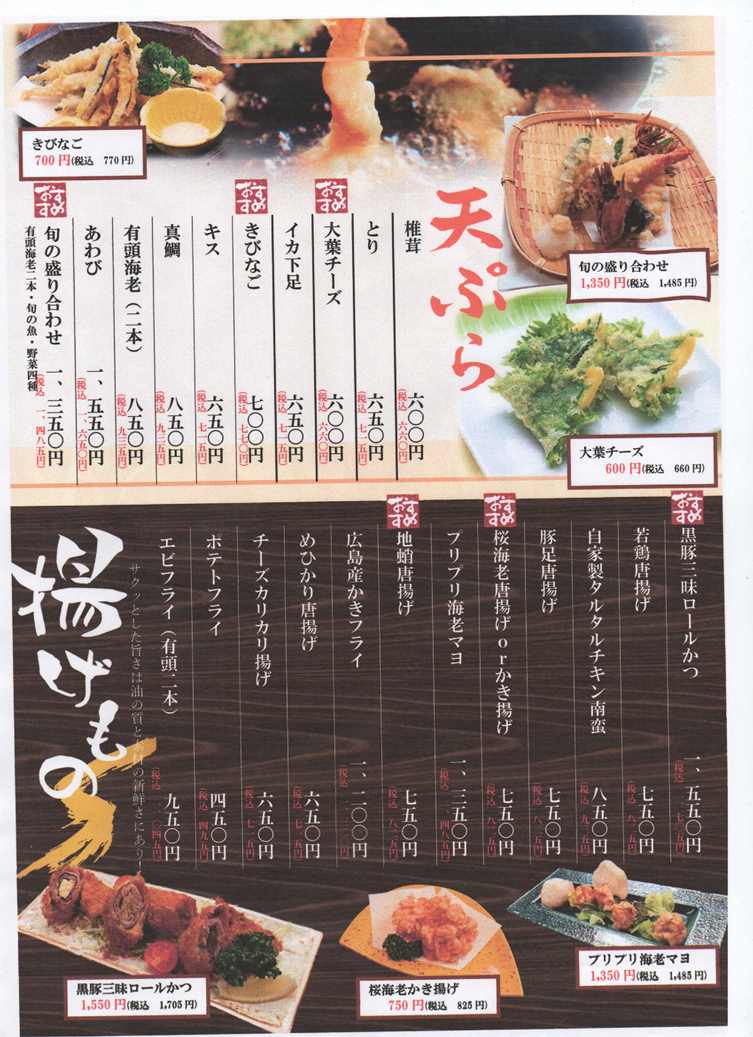 きびなご
700円(税込 770円)
旬の盛り合わせ
1,350円(税込 1,485円)
大葉チーズ
600円(税込 660円)
天ぷら
椎茸 六〇〇円
(税込 六六〇円)
とり 六五〇円
(税込 七一五円)
おすすめ
大葉チーズ 六〇〇円
(税込 六六〇円)
イカ下足 六五〇円
(税込 七一五円)
おすすめ
きびなご 七〇〇円
(税込 七七〇円)
キス 六五〇円
(税込 七一五円)
真鯛 八五〇円
(税込 九三五円)
有頭海老(二本) 八五〇円
(税込 九三五円)
あわび 一、五〇〇円
(税込 一、六五〇円)
おすすめ
旬の盛り合わせ 一、三五〇円
(税込 一、四八五円)
有頭海老二本・旬の魚・野菜四種
おすすめ
黒豚三味ロールかつ 一、五五〇円
若鶏唐揚げ 七五〇円
自家製タルタルチキン南蛮 八五〇円
豚足唐揚げ 七五〇円
おすすめ
桜海老唐揚げorかき揚げ 七五〇円
プリプリ海老マヨ 一、三五〇円
おすすめ
地蛸唐揚げ 七五〇円
広島産かきフライ 一、二〇〇円
めひかり唐揚げ 六五〇円
チーズカリカリ揚げ 六五〇円
ポテトフライ 四五〇円
(税込 四九五円)
エビフライ(有頭二本) 九五〇円
サクッとした旨さは油の質と
の新鮮さにあり!
揚げもの
黒豚三味ロールかつ
1,550円(税込 1,705円)
桜海老かき揚げ
750円(税込 825円)
プリプリ海老マヨ
1,350円(税込 1,485円)